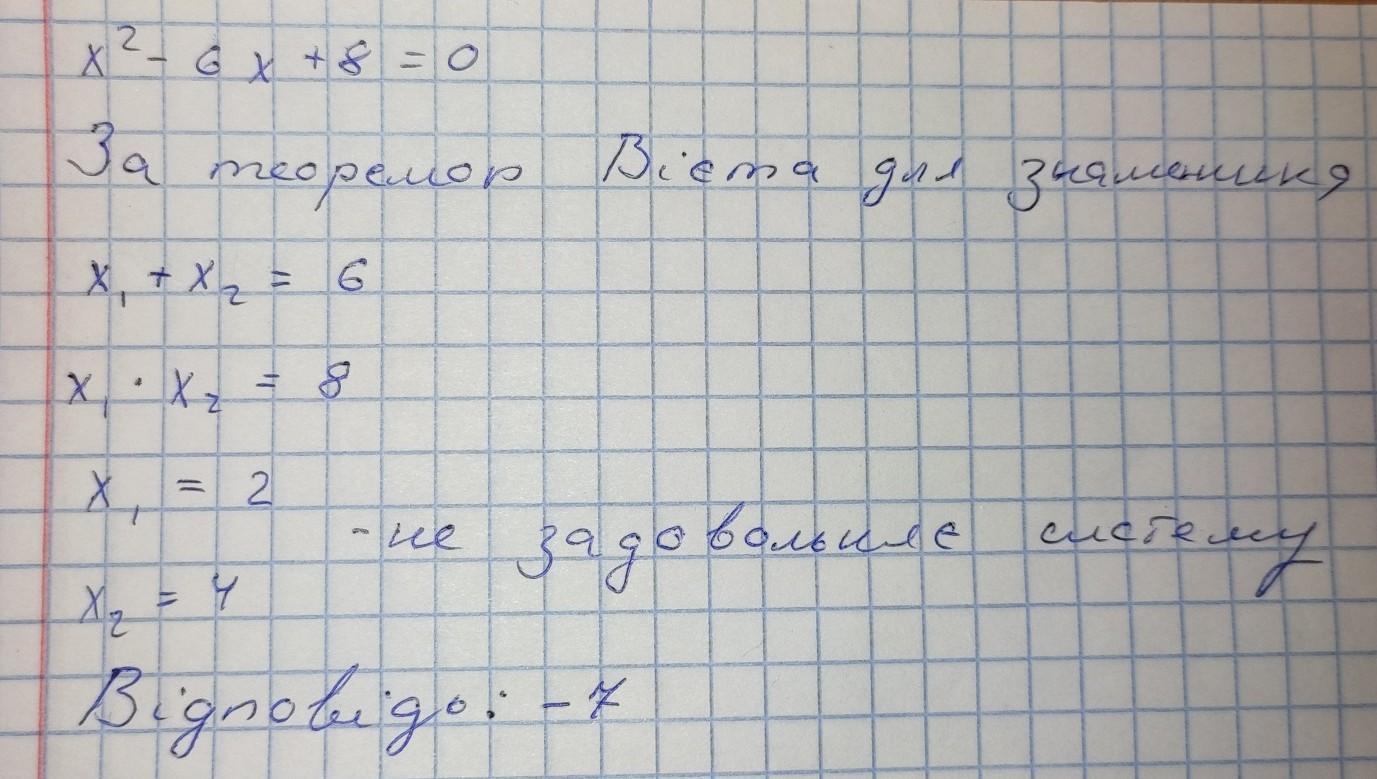 x² - 6x + 8 = 0
За теоремою Вієта для знаменника
x₁ + x₂ = 6
x₁ · x₂ = 8
x₁ = 2
- не задовольняє систему
x₂ = 4
Відповідь: -7